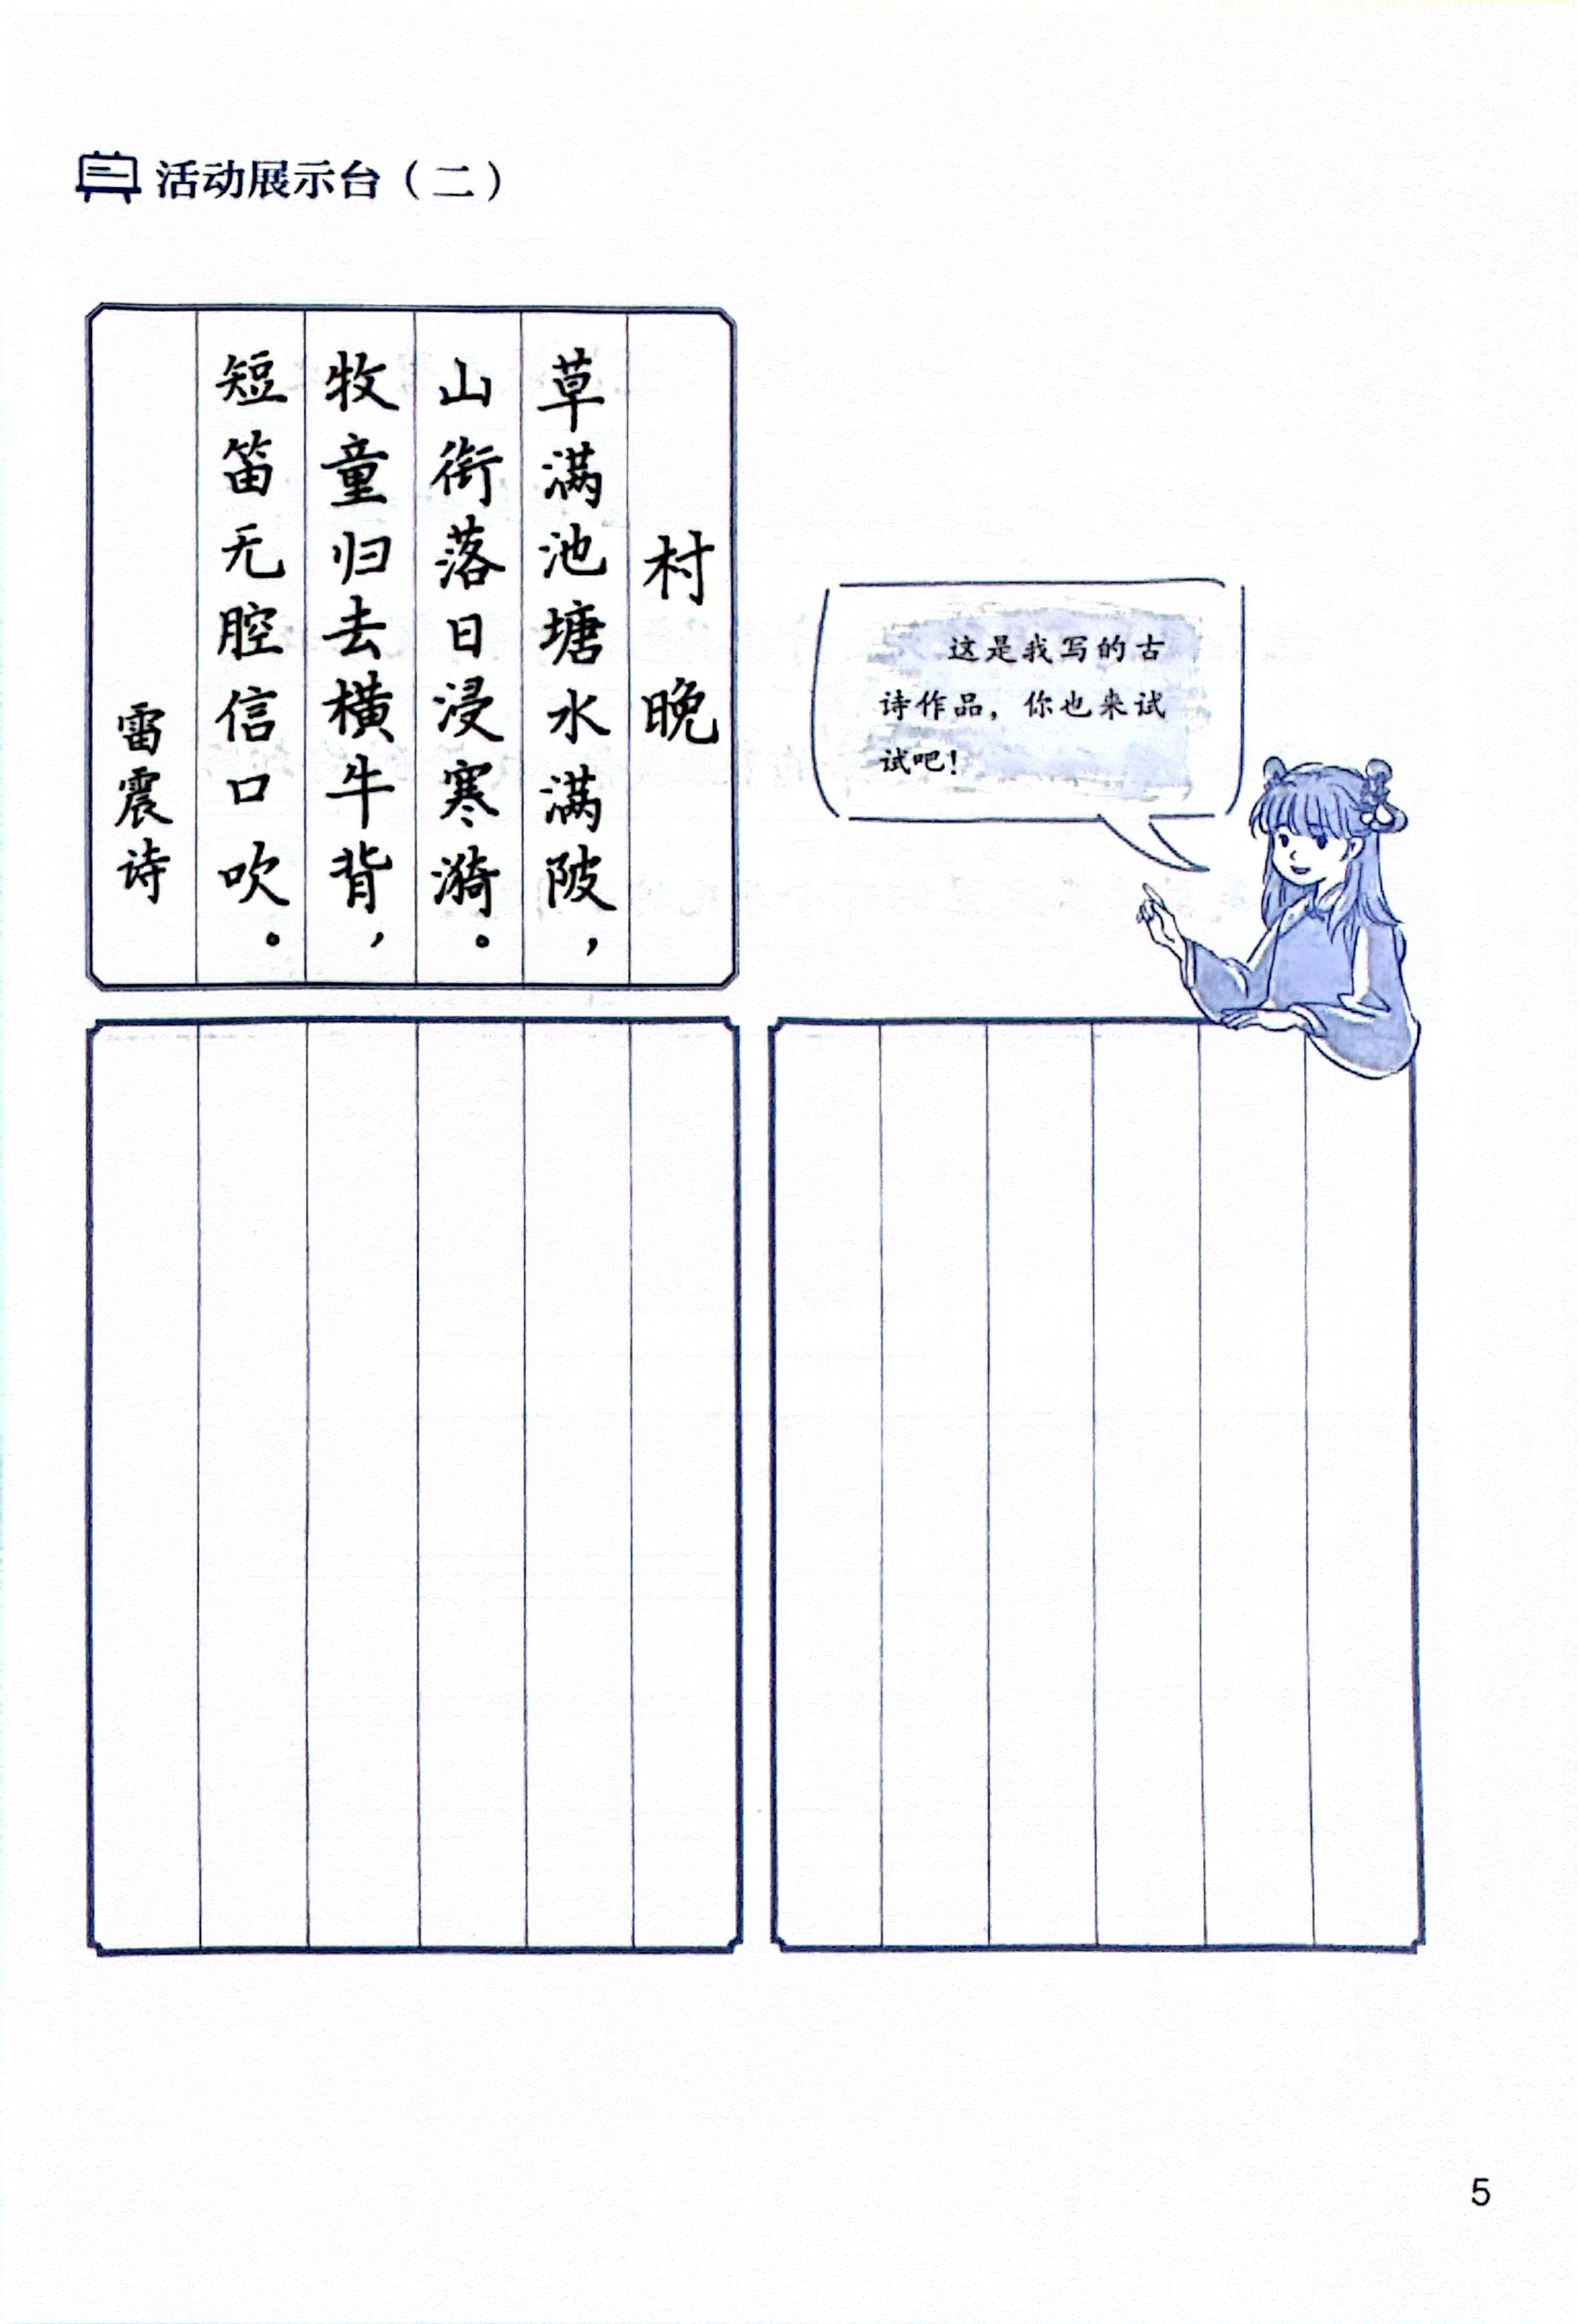 活动展示台（二）
村晚
草满池塘水满陂，
山衔落日浸寒漪。
牧童归去横牛背，
短笛无腔信口吹。
雷震诗
这是我写的古
诗作品，你也来试
试吧！
5